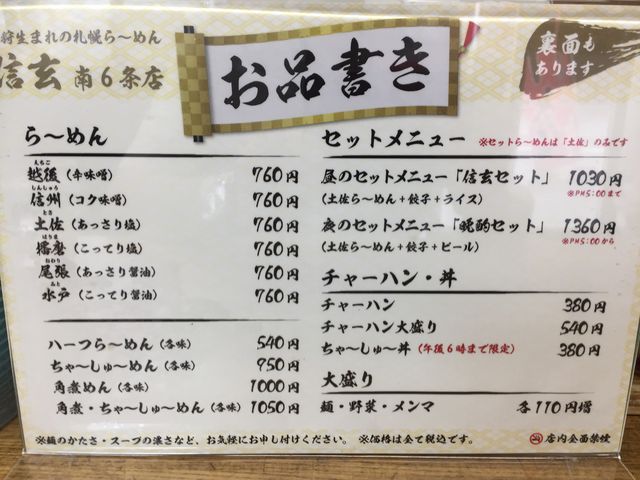 狩生まれの札幌ら〜めん
信玄 南6条店
お品書き
裏面も
あります
ら〜めん
越後(辛味噌) 760円
えちご
信州(コク味噌) 760円
しんしゅう
土佐(あっさり塩) 760円
とさ
播磨(こってり塩) 760円
はりま
尾張(あっさり醤油) 760円
おわり
水戸(こってり醤油) 760円
みと
ハーフら〜めん(各味) 540円
ちゃ〜しゅ〜めん(各味) 950円
角煮めん(各味) 1000円
角煮・ちゃ〜しゅ〜めん(各味) 1050円
セットメニュー ※セットら〜めんは「土佐」のみです
昼のセットメニュー「信玄セット」 1030円
(土佐ら〜めん+餃子+ライス) ※PM5:00まで
夜のセットメニュー「晩酌セット」 1360円
(土佐ら〜めん+餃子+ビール) ※PM5:00から
チャーハン・丼
チャーハン 380円
チャーハン大盛り 540円
ちゃ〜しゅ〜丼(午後6時まで限定) 380円
大盛り
麺・野菜・メンマ 各110円増
※麺のかたさ・スープの濃さなど、お気軽にお申し付けください。 ※価格は全て税込です。
店内全面禁煙